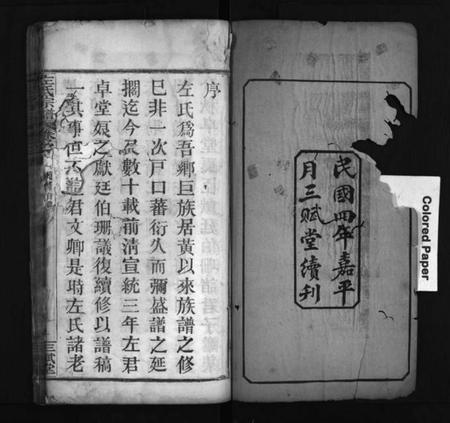 民國四年嘉平
月三賦堂續刋
Colored Paper
序
左氏爲吾鄉巨族居黃以來族譜之修
巳非一次戸口蕃衍久而彌盛譜之延
擱迄今數十載前清宣統三年左君
卓堂之獻廷伯珊議復續修以譜稿
一其事但不君文卿是時左氏諸老
左氏宗譜
三賦堂